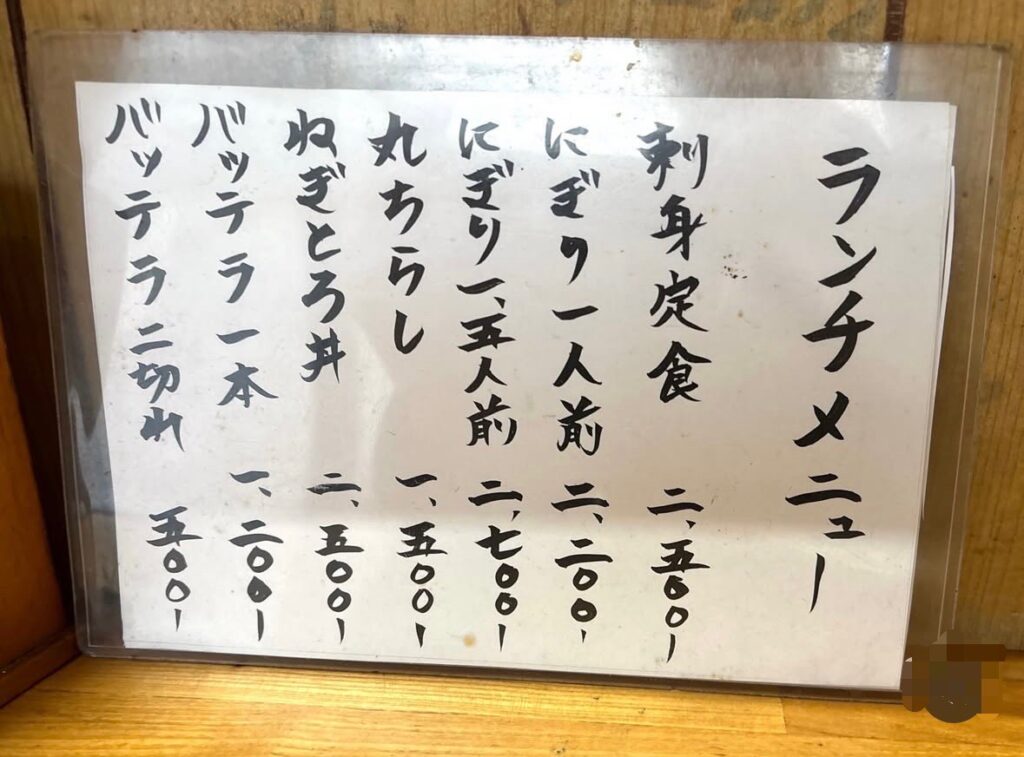 ランチメニュー
刺身定食 二、五〇〇-
にぎり一人前 二、二〇〇-
にぎり一、五人前 二、七〇〇-
丸ちらし 一、五〇〇-
ねぎとろ丼 二、五〇〇-
バッテラ一本 一、二〇〇-
バッテラ二切れ 五〇〇-